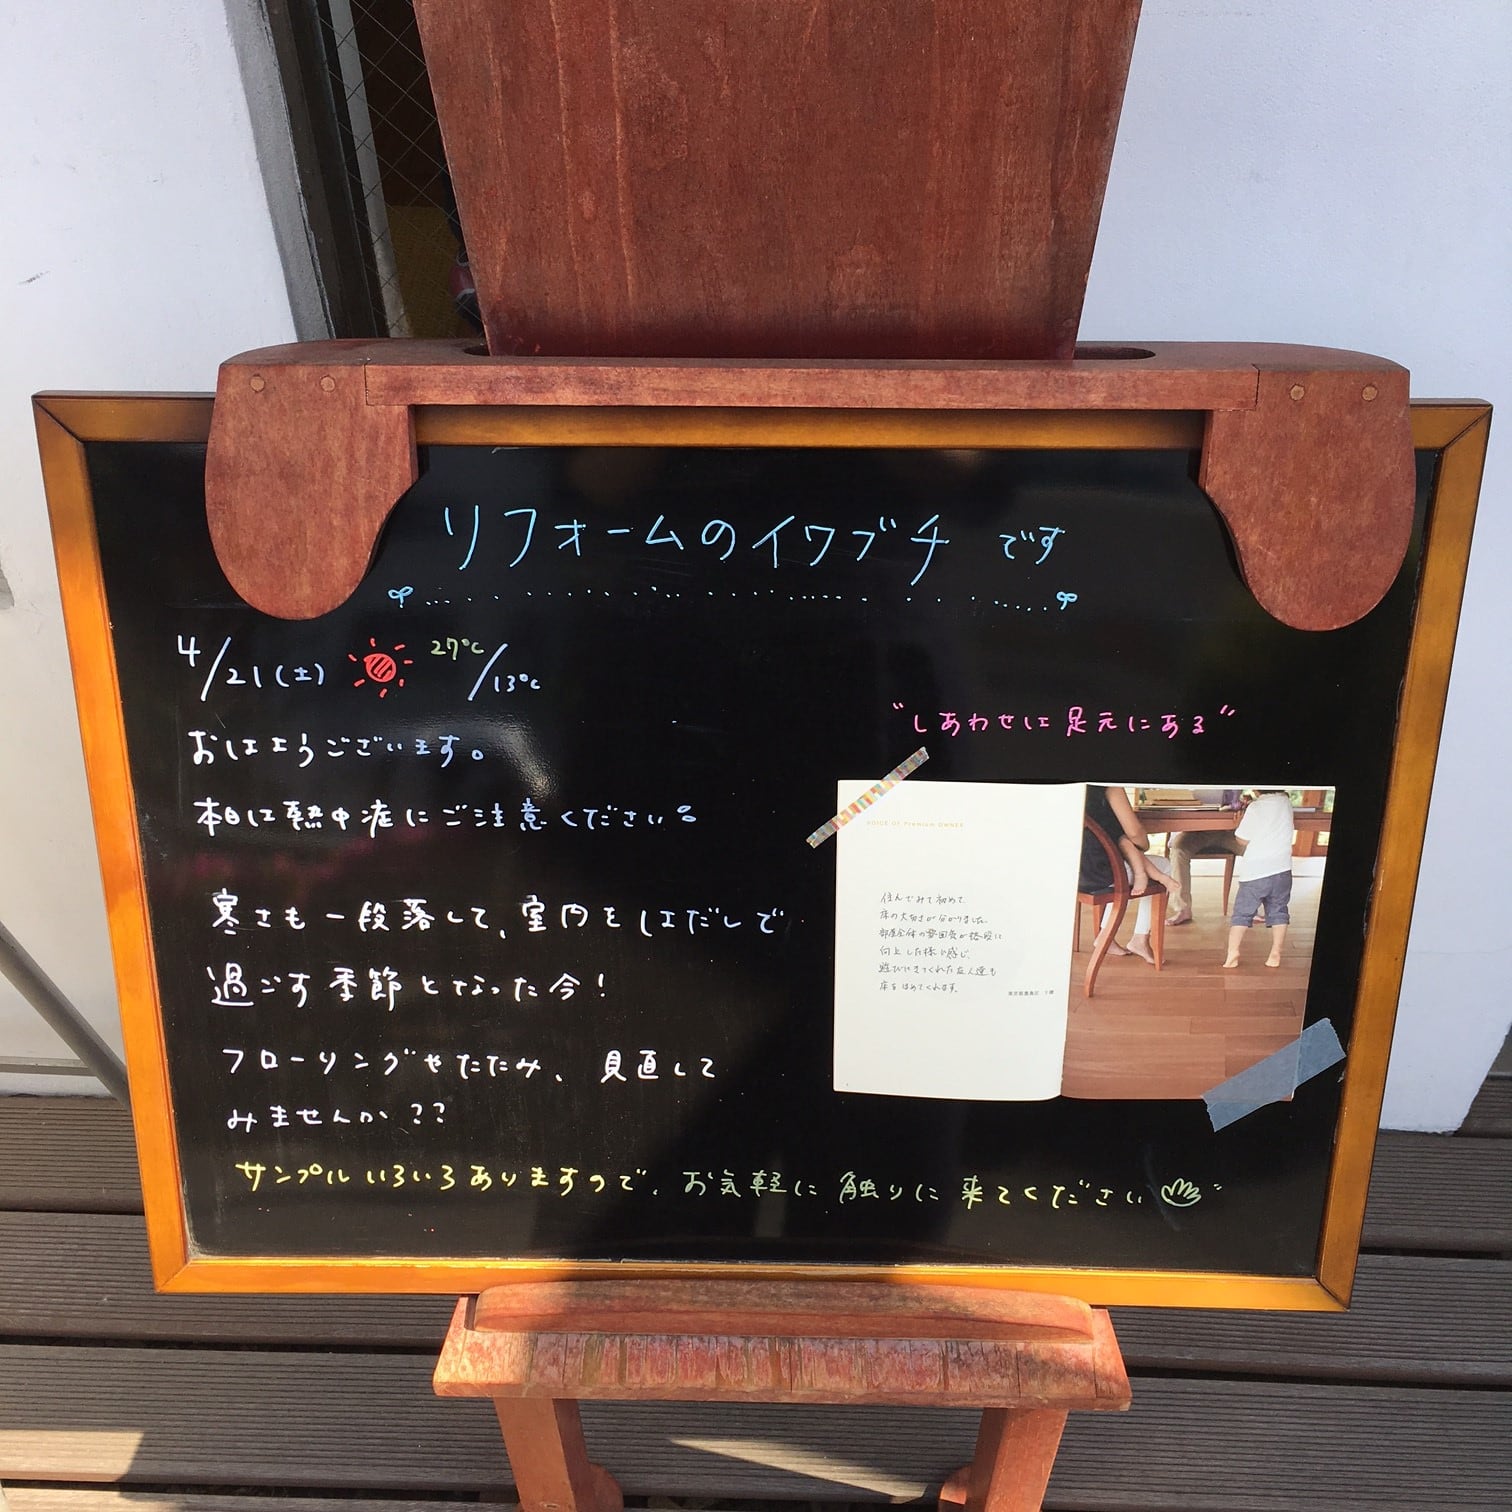 リフォームのイワブチ です
4/21(土) 27℃/13℃
おはようございます。
本日は熱中症にご注意ください。
寒さも一段落して、室内をはだしで
過ごす季節となった今!
フローリングやたたみ、見直して
みませんか??
サンプルいろいろありますので、お気軽に触りに来てください
"しあわせは足元にある"
VOICE OF Premium OWNER
住んでみて初めて、
床の大切さが分かりました。
部屋全体の雰囲気が格段に
向上した様に感じ、
遊びにきてくれた友人達も
床をほめてくれます。
東京都豊島区